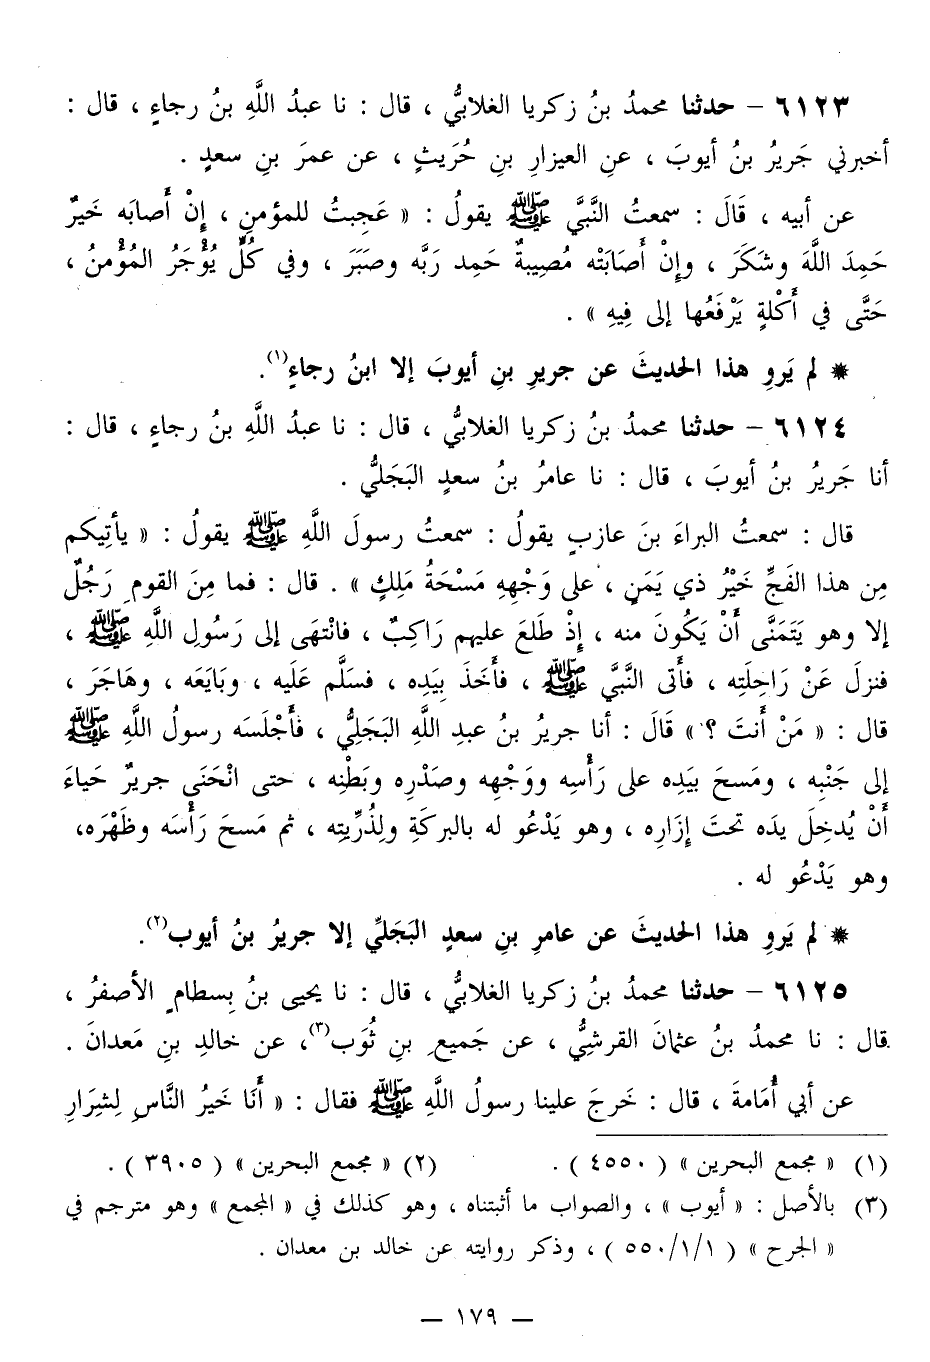 ٦١٢٣ – حدثنا محمدُ بنُ زكريا الغلابيُّ ، قال : نا عبدُ اللَّهِ بنُ رجاءٍ ، قال :
أخبرني جَريرُ بنُ أيوبَ ، عنِ العيزارِ بنِ حُرَيثٍ ، عن عمرَ بنِ سعدٍ .
عن أبيه ، قَالَ : سمعتُ النَّبيَّ ﷺ يقولُ : « عَجِبتُ للمؤمنِ ، إِنْ أَصابَه خَيرٌ
حَمِدَ اللَّهَ وشكَرَ ، وإِنْ أَصَابَتْه مُصِيبةٌ حَمِد رَبَّه وصبَرَ ، وفي كُلٍّ يُؤْجَرُ المُؤْمنُ ،
حَتَّى في أَكْلةٍ يَرْفَعُها إلى فِيهِ » .
✵ لم يَروِ هذا الحديثَ عن جريرِ بنِ أيوبَ إلا ابنُ رجاءٍ(١).
٦١٢٤ – حدثنا محمدُ بنُ زكريا الغلابيُّ ، قال : نا عبدُ اللَّهِ بنُ رجاءٍ ، قال :
أنا جَريرُ بنُ أيوبَ ، قال : نا عامرُ بنُ سعدٍ البَجَليُّ .
قال : سمعتُ البراءَ بنَ عازبٍ يقولُ : سمعتُ رسولَ اللَّهِ ﷺ يقولُ : « يأتِيكم
مِن هذا الفَجِّ خَيْرُ ذي يَمَنٍ ، على وَجْهِهِ مَسْحَةُ مَلِكٍ » . قال : فما مِنَ القومِ رَجُلٌ
إلا وهو يَتَمَنَّى أَنْ يَكُونَ منه ، إِذْ طَلعَ عليهم رَاكِبٌ ، فانْتهَى إلى رَسُولِ اللَّهِ ﷺ ،
فنزلَ عَنْ رَاحِلَتِه ، فأَتى النَّبيَّ ﷺ ، فأَخَذ بِيَدِه ، فسَلَّم عَلَيه ، وبَايَعَه ، وهَاجَرَ ،
قال : « مَنْ أَنتَ ؟ » قَالَ : أنا جريرُ بنُ عبدِ اللَّهِ البَجَليُّ ، فأَجْلَسَه رسولُ اللَّهِ ﷺ
إلى جَنْبِه ، ومَسحَ بيَدِه على رَأْسِه ووَجْهِه وصَدْرِه وبَطْنِه ، حتى انْحَنَى جريرٌ حَياءً
أَنْ يُدخِلَ يدَه تحتَ إِزَارِه ، وهو يَدْعُو له بالبركةِ ولِذُرِّيتِه ، ثم مَسحَ رَأْسَه وظَهْرَه،
وهو يَدْعُو له .
✵ لم يَروِ هذا الحديثَ عن عامرِ بنِ سعدٍ البَجَليِّ إلا جريرُ بنُ أيوب(٢).
٦١٢٥ – حدثنا محمدُ بنُ زكريا الغلابيُّ ، قال : نا يحيى بنُ بِسطامٍ الأصفرُ ،
قال : نا محمدُ بنُ عثمانَ القرشيُّ ، عن جَميعِ بنِ ثُوَب(٣)، عن خالدِ بنِ مَعدانَ .
عن أبي أُمَامةَ ، قال : خَرجَ علينا رسولُ اللَّهِ ﷺ فقال : « أَنَا خَيرُ النَّاسِ لِشِرَارِ
(١) « مجمع البحرين » ( ٤٥٥٠ ) . (٢) « مجمع البحرين » ( ٣٩٠٥ ) .
(٣) بالأصل : « أيوب » ، والصواب ما أثبتناه ، وهو كذلك في « المجمع » وهو مترجم في
« الجرح » ( ٥٥٠/١/١ ) ، وذكر روايته عن خالد بن معدان .
— ١٧٩ —